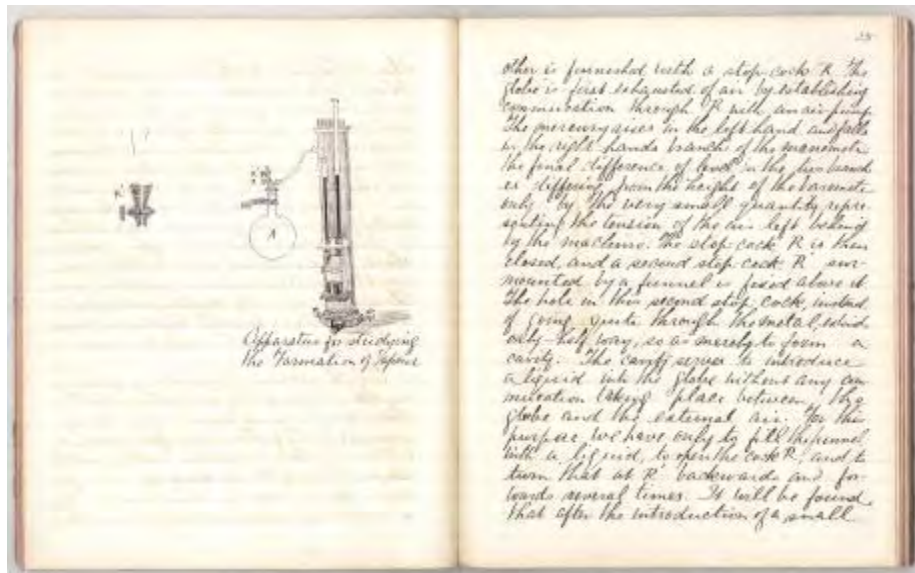 A
Apparatus for studying
the Formation of Vapour
other is furnished with a stop-cock R. The
globe is first exhausted of air by establishing
communication through R with an air pump
The mercury rises in the left hand and falls
in the right hands branch of the manometer
the final difference of level in the two branch
es differing from the height of the baromete
only by the very small quantity repre-
senting the tension of the air left behind
by the machine. The stop-cock R is then
closed, and a second stop-cock R' sur-
mounted by a funnel is fixed above it
The hole in this second stop cock, instead
of going quite through the metal, extends
only half way, so as merely to form a
cavity. The cavity serves to introduce
a liquid into the globe without any com
munication taking place between the
globe and the external air. For this
purpose we have only to fill the funnel
with a liquid, to open the cock R, and to
turn that at R' backwards and for-
wards several times. It will be found
that after the introduction of a small